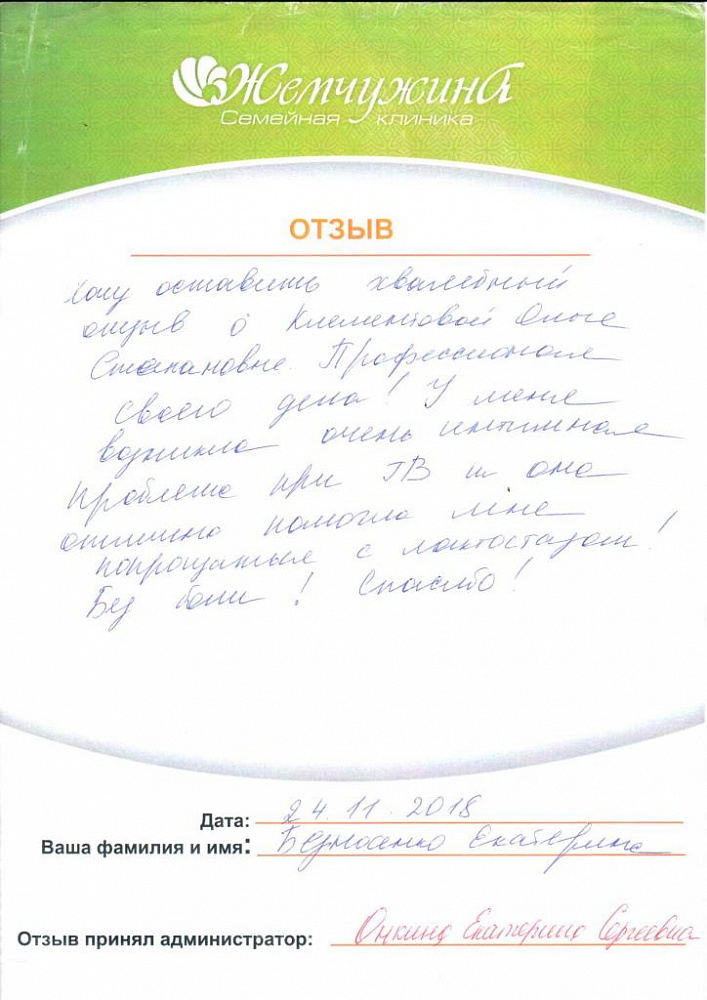 Жемчужина
Семейная клиника
ОТЗЫВ
Хочу оставить хвалебный
отзыв о Клементовой Ольге
Степановне. Профессионал
своего дела! У меня
возникла очень интимная
проблема при ГВ и она
отлично помогла мне
попрощаться с лактостазом!
Без боли! Спасибо!
Дата: 24.11.2018
Ваша фамилия и имя: Екатерина
Отзыв принял администратор: Екатерина Сергеевна